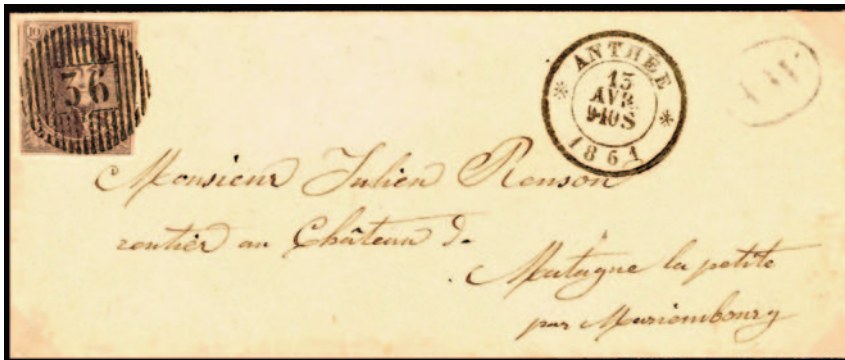 10
36
ANTHÉE
15
AVR.
9-10S
1861
Monsieur Julien Ronson
rentier au Château d.
Matagne la petite
par Mariembourg